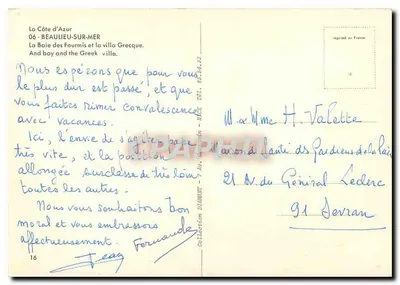 La Côte d'Azur
06 - BEAULIEU-SUR-MER
La Baie des Fourmis et la villa Grecque.
And bay and the Greek villa.
Nous espérons que pour vous
le plus dur est passé, et que
vous faites rimer convalescence
avec vacances.
Ici, l'envie de s'agiter passe
très vite, et la position
allongée surclasse de très loin
toutes les autres.
Nous vous souhaitons bon
moral et vous embrassons
affectueusement.
Jean Fernande
16
M. Mme H. Valette
Maison de Santé des Gardiens de la Paix
21 Av. du Général Leclerc
91 Sevran